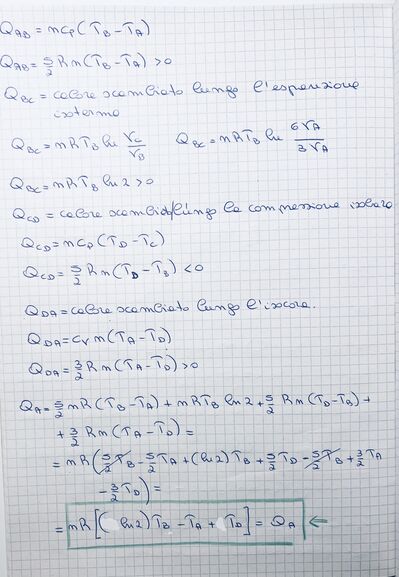 Q_AB = n c_P (T_B - T_A)
Q_AB = 5/2 R n (T_B - T_A) > 0
Q_BC = calore scambiato lungo l'espansione
isoterma
Q_BC = n R T_B ln V_C/V_B   Q_BC = n R T_B ln 6V_A/3V_A
Q_BC = n R T_B ln 2 > 0
Q_CD = calore scambiato lungo la compressione isobara
Q_CD = n c_P (T_D - T_C)
Q_CD = 5/2 R n (T_D - T_B) < 0
Q_DA = calore scambiato lungo l'isocora.
Q_DA = c_V n (T_A - T_D)
Q_DA = 3/2 R n (T_A - T_D) > 0
Q_A = 5/2 n R (T_B - T_A) + n R T_B ln 2 + 5/2 R n (T_D - T_B) +
+ 3/2 R n (T_A - T_D) =
= n R (5/2 T_B - 5/2 T_A + (ln 2) T_B + 5/2 T_D - 5/2 T_B + 3/2 T_A
- 3/2 T_D) =
= n R [( ln 2) T_B - T_A + T_D] = Q_A ⇐